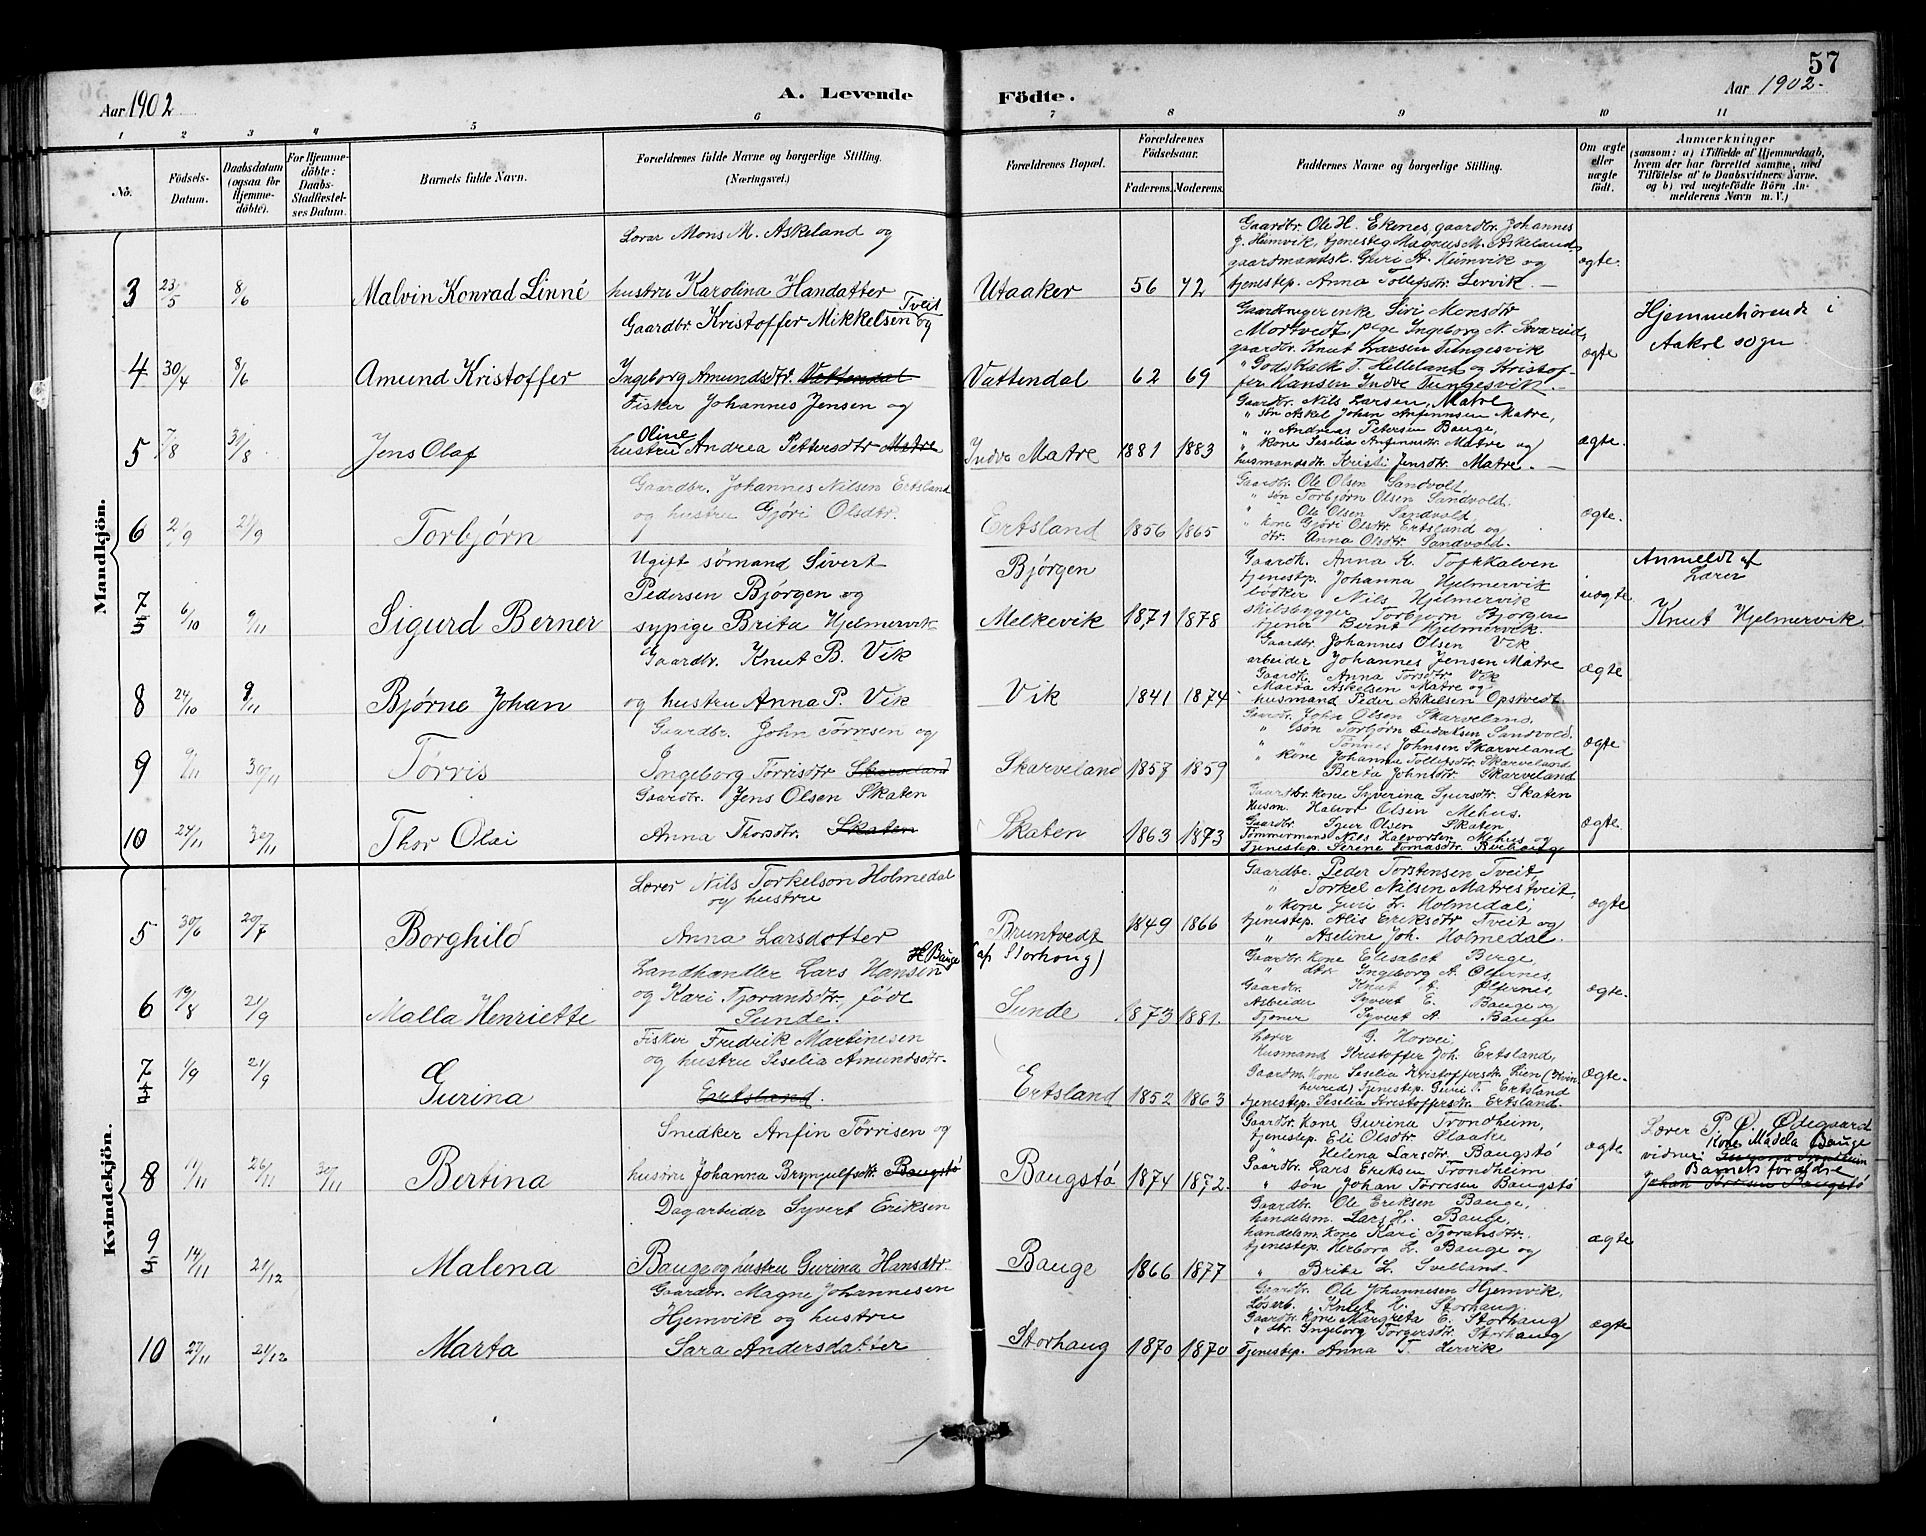 57
Aar 1902
A. Levende Födte.
Aar 1902.
1 2 3 4 5 6 7 8 9 10 11
No.
Födsels-Datum.
Daabsdatum (ogsaa för Hjemme-döbte).
For Hjemme-döbte: Daabs-Stadfæstel-ses Datum.
Barnets fulde Navn.
Forældrenes fulde Navne og borgerlige Stilling. (Næringsvei.)
Forældrenes Bopæl.
Forældrenes Födselsaar.
Faderens. Moderens.
Faddernes Navne og borgerlige Stilling.
Om ægte eller uægte födt.
Anmærkninger
(saasom: a) i Tilfælde af Hjemmedaab,
hvem der har forrettet samme, med
Tilföielse af to Daabsvidners Navne.
og b) ved uægtefödte Börn An-
melderens Navn m. V.)
Mandkjön.
3 23/5 8/6 Malvin Konrad Linné
Lærer Mons M. Askeland og
hustru Karolina Hansdatter
Utaaker 56 72
Gaardbr. Ole H. Ekenes, gaardbr. Johannes
J. Heimvik, tjenesteg. Magnus M. Askeland,
gaardmandsk. Guri A. Heimvik og
tjenestep. Anna Tollefsdtr. Lervik. —
ægte.
4 30/4 8/6 Amund Kristoffer
Gaardbr. Kristoffer Mikkelsen Tveit og
Ingeborg Amundsdtr. Vattendal
Vattendal 62 69
Gaardmager enke Siri Monsdtr
Mortvedt, pige Ingeborg N. Svarud,
gaardbr. Knut Larsen Tungesvik
" Godskalk T. Helleland og Kristof-
fer Hansen Indve Tungesvik. —
ægte
Hjemmehörende i
Aakre sogn
5 7/8 31/8 Jens Olaf
Fisker Johannes Jensen og
hustru Oline Andrea Pettersdtr Matre
Indve Matre 1881 1883
Gaardbr. Nils Larsen, Matre
" sön Askel Johan Anfinnsen Matre,
" " Andreas Petersen Bauge,
" kone Seselia Anfinnsdtr. Matre og
husmandsdtr. Kristi Jensdtr. Matre. —
ægte.
6 2/9 21/9 Torbjørn
Gaardbr. Johannes Nilsen Ertsland
og hustru Gjøri Olsdtr.
Ertsland 1856 1865
Gaardbr. Ole Olsen Sandvold
" søn Torbjørn Olsen Sandvold.
" Ole Olsen Sandvold
" kone Gjøri Olsdtr. Ertsland og
" dtr. Anna Olsdtr. Sandvold.
ægte.
7 6/10 9/11 Sigurd Berner
Ugift sømand Sivert
Pedersen Bjørgen og
sypige Brita Hjelmervik
Bjørgen
Melkevik 1871 1878
Gaardk. Anna K. Tofkkalven
tjenestep. Johanna Hjelmervik
bøoker Nils Hjelmervik
skibsbygger Torbjørn Bjørgen
tjener Bernt Hjelmervik.
uægte
Anmeldt af
Lærer
Knut Hjelmervik
8 24/10 9/11 Bjørne Johan
Gaardbr. Knut B. Vik
og hustru Anna P. Vik
Vik 1841 1874
Gaardbr. Johannes Olsen Vik
arbeider Johannes Jensen Matre
Gaardk. Anna Torsdtr. Vik
Marta Askelsen Matre og
husmand Peder Askelsen Opstvedt
ægte
9 9/11 30/11 Tørris
Gaardbr. John Tørresen og
Ingeborg Tørrisdtr Skarveland
Skarveland 1857 1859
Gaardbr. John Olsen Skarveland.
" søn Torbjørn Sandvold
" " Tønnes Johnsen Skarveland
" kone Johanna Tollefsdtr. Skarveland
Berta Johnsdtr Skarveland
ægte
10 24/11 30/11 Thor Olai
Gaardbr. Jens Olsen Skaten
Anna Thorsdtr. Skaten
Skaten 1863 1873
Gaardbr. kone Syverina Sjursdtr. Skaten
Husm. Halvor Olsen Mehus.
Gaardbr. Sjur Olsen Skaten
Tömmermand Nils Halvorsen Mehus og
Tjenestep. Serene Tomasdtr.
ægte
Kvindekjön.
5 30/6 20/7 Borghild
Lærer Nils Torkelson Holmedal
og hustru
Anna Larsdotter
Bruntvedt
(af Storhoug) 1849 1866
Gaardbr. Peder Torstensen Tveit,
" Torkel Nilsen Matrestveit,
" kone Guri L. Holmedal,
tjenestep. Alis Eriksdtr Tveit og
" Aseline Joh. Holmedal.
ægte
6 19/8 21/9 Malla Henriette
Landhandler Lars Hansen H Bauge
og Kari Tjorandsdtr. föde
Sunde.
Sunde 1873 1881.
Gaardbr. kone Elisabet Berge,
" dtr. Ingeborg A. Ølfernes,
Gaardbr. Knut A. Ølfernes,
Arbeider Syvert E. Bauge og
Tjener Syvert A. Bauge
ægte.
7 1/9 21/9 Gurina
Fisker Fredrik Martinesen
og hustru Seselia Amundsdtr.
Ertsland.
Ertsland 1852 1863
Lærer G. Horvei,
Husmand Kristoffer Joh. Ertsland,
Gaardm. kone Seselia Kristoffersdtr. Lien (Kvin-
herred) Tjenestep. Guri T. Ertsland
tjenestep. Seselia Kristoffersdtr. Ertsland.
ægte.
8 11/11 26/11 30/11 Bertina
Snedker Anfin Tørrisen og
hustru Johanna Brynjulfsdtr. Baugstø
Baugstø 1874 1872.
Gaardbr. kone Gurina Trondheim,
tjenestep. Eli Olsdtr Olsaake
" Helena Larsdtr. Baugstø
Gaardbr. Lars Eriksen Trondheim
" søn Johan Tørrisen Baugstø
ægte
Lærer P. Ø. Ødegaard
Kone Madela Bauge
vidner: Gurina Trondheim
Barnets forældre
Johan Tørrisen Baugstø
9 14/11 21/12 Malena
Dagarbeider Syvert Eriksen
Bauge og hustru Gurina Hansdtr.
Bauge 1866 1877
Gaardbr. Ole Eriksen Bauge,
handelsm. Lars H. Bauge,
handelsm. kone Kari Tjorandsdtr.
tjenestep. Herborg L. Bauge og
" Brita L. Svelland.
ægte
10 27/11 21/12 Marta
Gaardbr. Magne Johannesen
Hjemvik og hustru
Sara Andersdatter
Storhaug 1870 1870
Gaardbr. Ole Johannesen Hjemvik,
Løsarb. Knut H. Storhaug.
Gaardbr. kone Margreta E. Storhaug
" dtr. Ingeborg Torgersdtr. Storhaug
Tjenestep. Anna T. Lervik
ægte